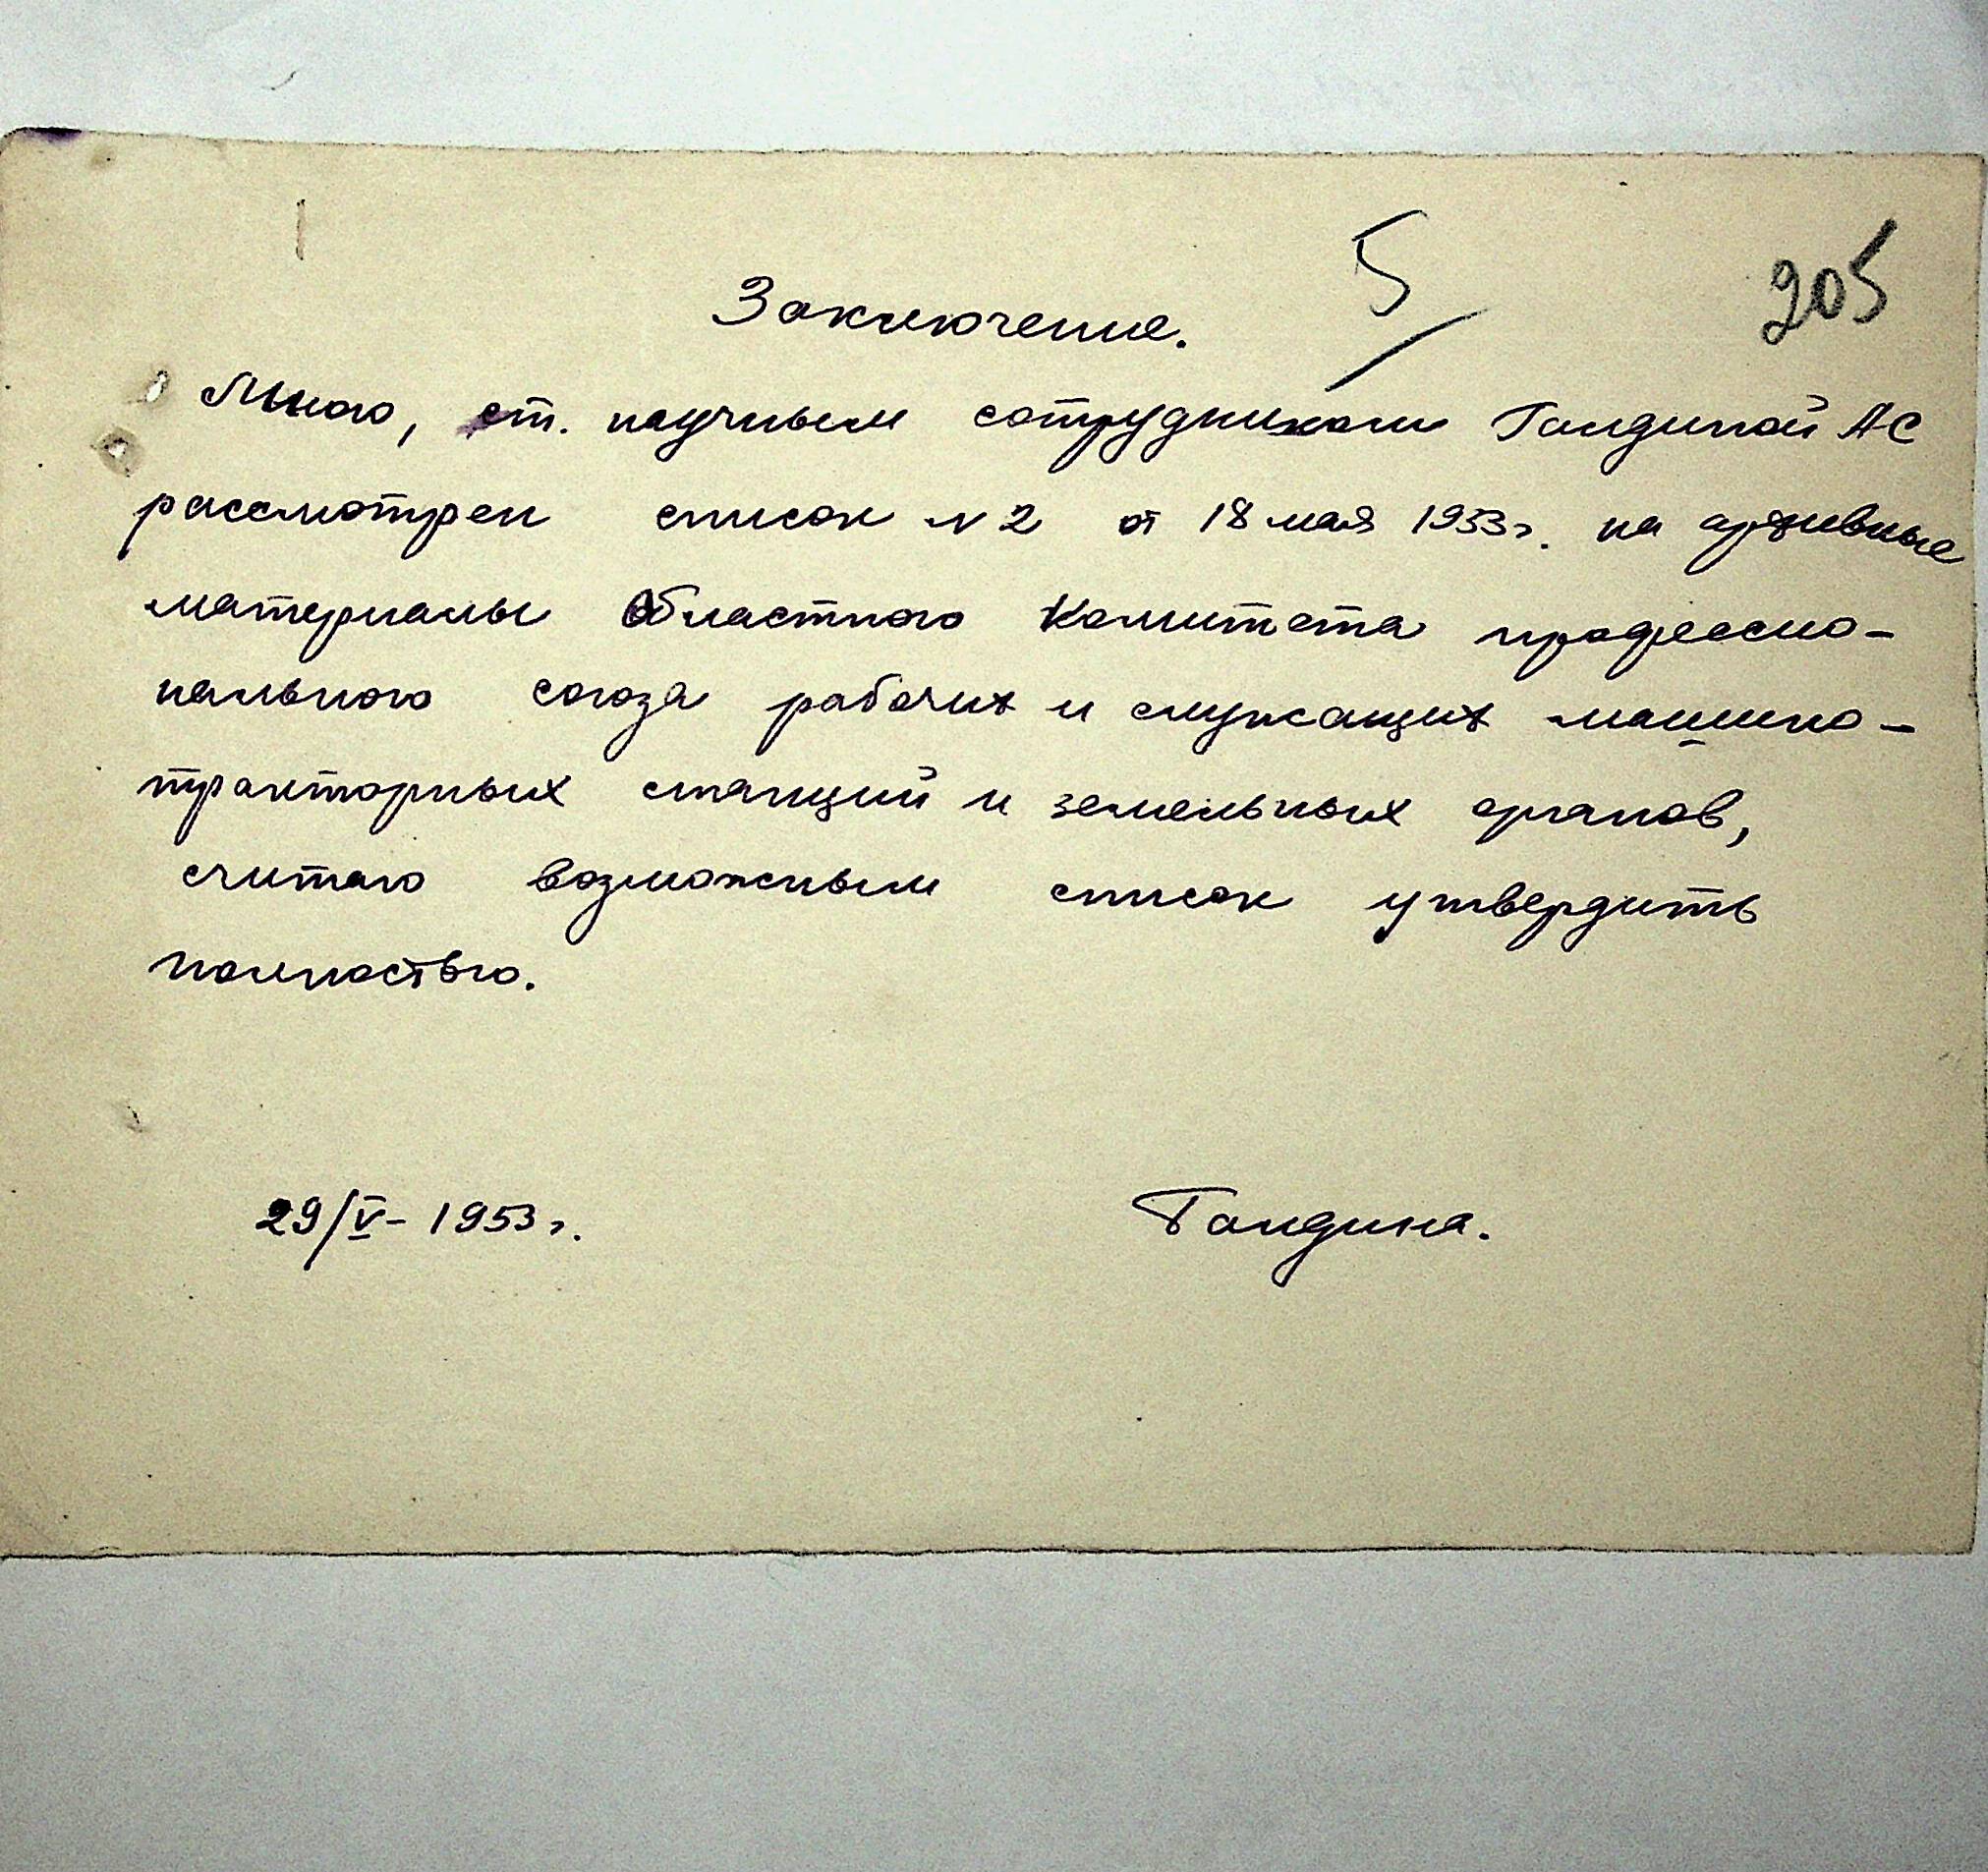 5
205
Заключение.
Мною, ст. научным сотрудником Галдиной АС
рассмотрен список N 2 от 18 мая 1953 г. на архивные
материалы Областного Комитета профессио-
нального союза рабочих и служащих машино-
тракторных станций и земельных органов,
считаю возможным список утвердить
полностью.
29/V - 1953 г.
Галдина.